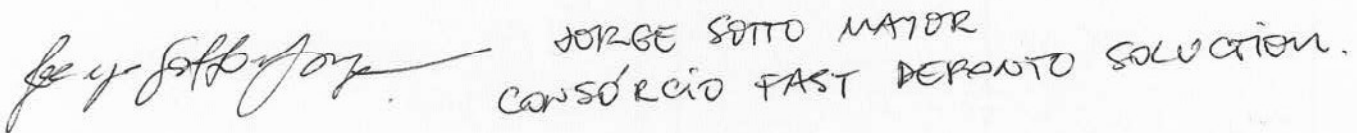 JORGE SOTTO MAYOR
CONSÓRCIO FAST DEPONTO SOLUCTION.